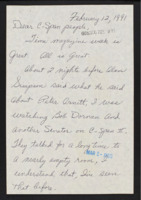 February 12, 1991
Dear C-Span people,
Time magazine said is
Great. All is Great
About 2 nights before Alan
Simpson said what he said
about Peter Arnett, I was
watching Bob Dornan and
another Senator on C-Span II.
They talked for a long time to
a nearly empty room, I
understand that, I've seen
that before.